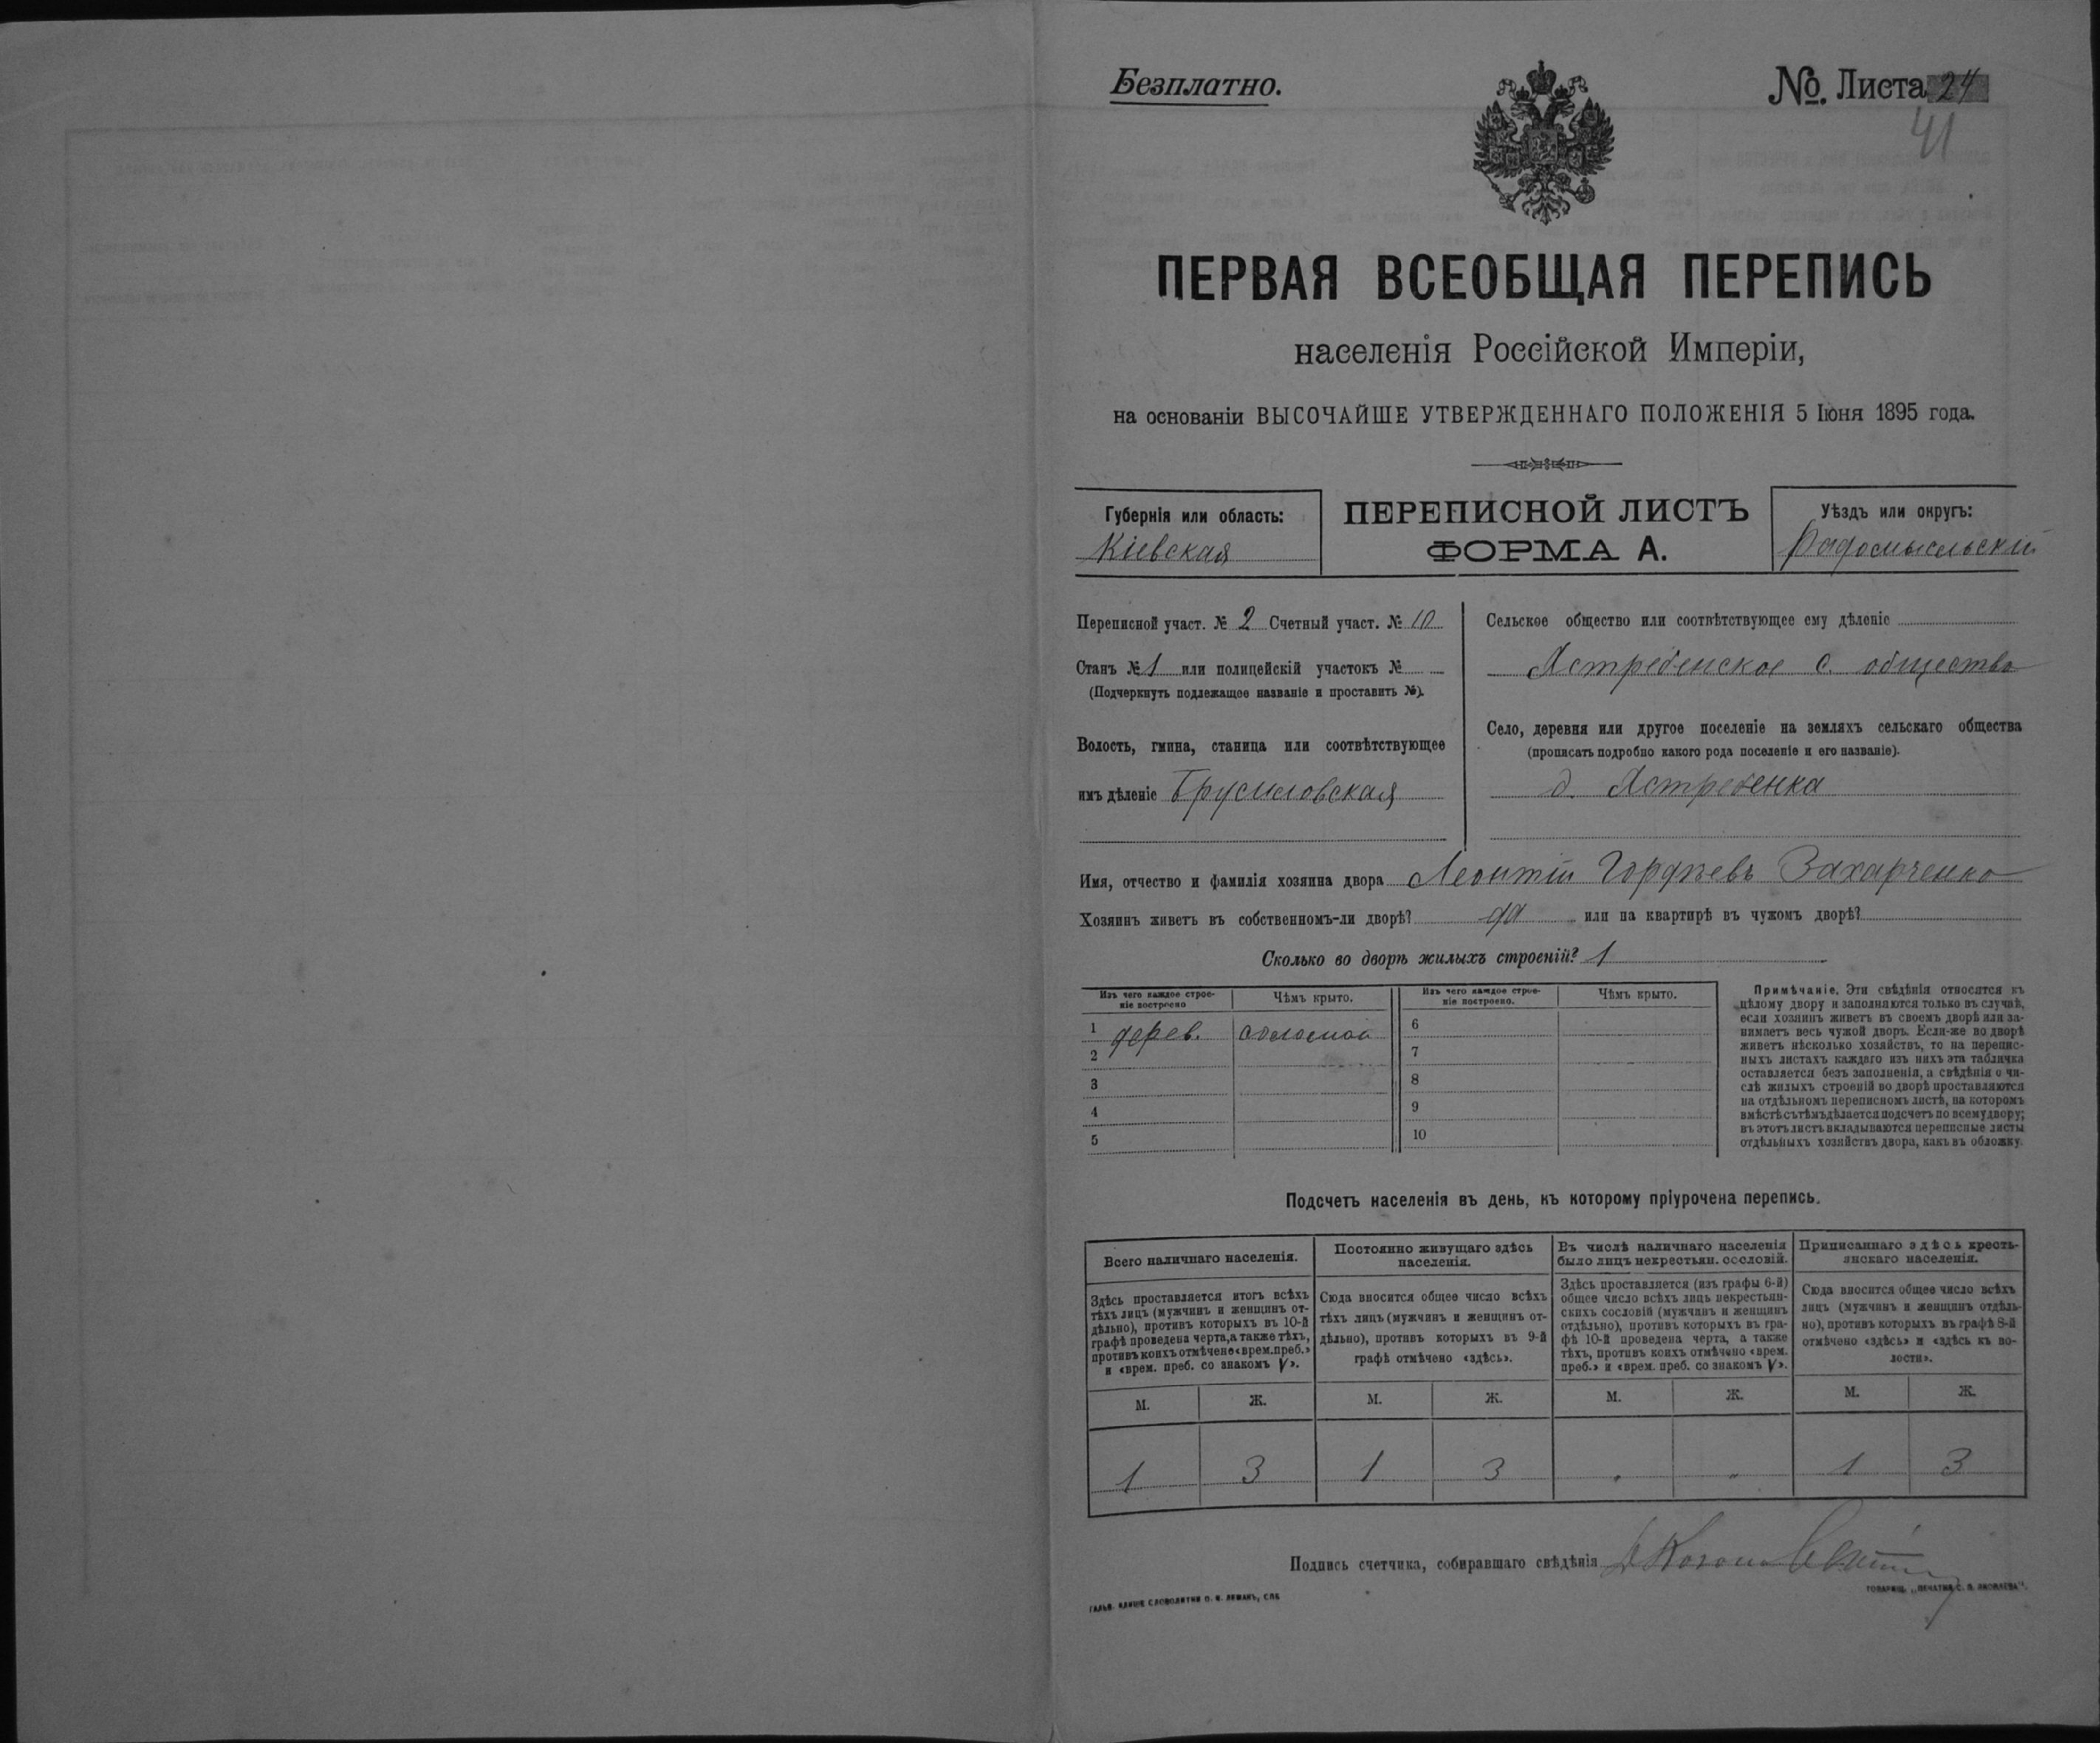 Безплатно.
№. Листа 24
41
ПЕРВАЯ ВСЕОБЩАЯ ПЕРЕПИСЬ
населенія Россійской Имперіи,
на основаніи ВЫСОЧАЙШЕ УТВЕРЖДЕННАГО ПОЛОЖЕНІЯ 5 Іюня 1895 года.
Губернія или область:
Кіевская
ПЕРЕПИСНОЙ ЛИСТЪ
ФОРМА А.
Уѣздъ или округъ:
Радомысльскій
Переписной участ. № 2 Счетный участ. № 10
Станъ № 1 или полицейскій участокъ №
(Подчеркнуть подлежащее названіе и проставить №).
Волость, гмина, станица или соотвѣтствующее
имъ дѣленіе Брусиловская
Сельское общество или соотвѣтствующее ему дѣленіе
Ястребенское с. общество
Село, деревня или другое поселеніе на земляхъ сельскаго общества
(прописать подробно какого рода поселеніе и его названіе).
д. Ястребенка
Имя, отчество и фамилія хозяина двора Леонтій Гордѣевъ Захарченко
Хозяинъ живетъ въ собственномъ-ли дворѣ? да или на квартирѣ въ чужомъ дворѣ?
Сколько во дворѣ жилыхъ строеній? 1
Изъ чего каждое строе-
ніе построено
Чѣмъ крыто.
Изъ чего каждое строе-
ніе построено.
Чѣмъ крыто.
1 дерев. соломой
2
3
4
5
6
7
8
9
10
Примѣчаніе. Эти свѣдѣнія относятся къ
цѣлому двору и заполняются только въ случаѣ,
если хозяинъ живетъ въ своемъ дворѣ или за-
нимаетъ весь чужой дворъ. Если-же во дворѣ
живетъ нѣсколько хозяйствъ, то на перепис-
ныхъ листахъ каждаго изъ нихъ эта табличка
оставляется безъ заполненія, а свѣдѣнія о чи-
слѣ жилыхъ строеній во дворѣ проставляются
на отдѣльномъ переписномъ листѣ, на которомъ
вмѣстѣ съ тѣмъ дѣлается подсчетъ по всему двору;
въ этотъ листъ вкладываются переписные листы
отдѣльныхъ хозяйствъ двора, какъ въ обложку.
Подсчетъ населенія въ день, къ которому пріурочена перепись.
Всего наличнаго населенія.
Здѣсь проставляется итогъ всѣхъ
тѣхъ лицъ (мужчинъ и женщинъ от-
дѣльно), противъ которыхъ въ 10-й
графѣ проведена черта, а также тѣхъ,
противъ коихъ отмѣчено «врем. преб.»
и «врем. преб. со знакомъ V».
Постоянно живущаго здѣсь
населенія.
Сюда вносится общее число всѣхъ
тѣхъ лицъ (мужчинъ и женщинъ от-
дѣльно), противъ которыхъ въ 9-й
графѣ отмѣчено «здѣсь».
Въ числѣ наличнаго населенія
было лицъ некрестьян. сословій.
Здѣсь проставляется (изъ графы 6-й)
общее число всѣхъ лицъ некрестьян-
скихъ сословій (мужчинъ и женщинъ
отдѣльно), противъ которыхъ въ гра-
фѣ 10-й проведена черта, а также
тѣхъ, противъ коихъ отмѣчено «врем.
преб.» и «врем. преб. со знакомъ V».
Приписаннаго здѣсь кресть-
янскаго населенія.
Сюда вносится общее число всѣхъ
лицъ (мужчинъ и женщинъ отдѣль-
но), противъ которыхъ въ графѣ 8-й
отмѣчено «здѣсь» и «здѣсь къ во-
лости».
М. Ж. М. Ж. М. Ж. М. Ж.
1 3 1 3 " " 1 3
Подпись счетчика, собиравшаго свѣдѣнія
ГАЛЬВ. КЛИШЕ СЛОВОЛИТНИ О. И. ЛЕМАНЪ, СПБ.
ТОВАРИЩ. „ПЕЧАТНЯ С. П. ЯКОВЛЕВА“.